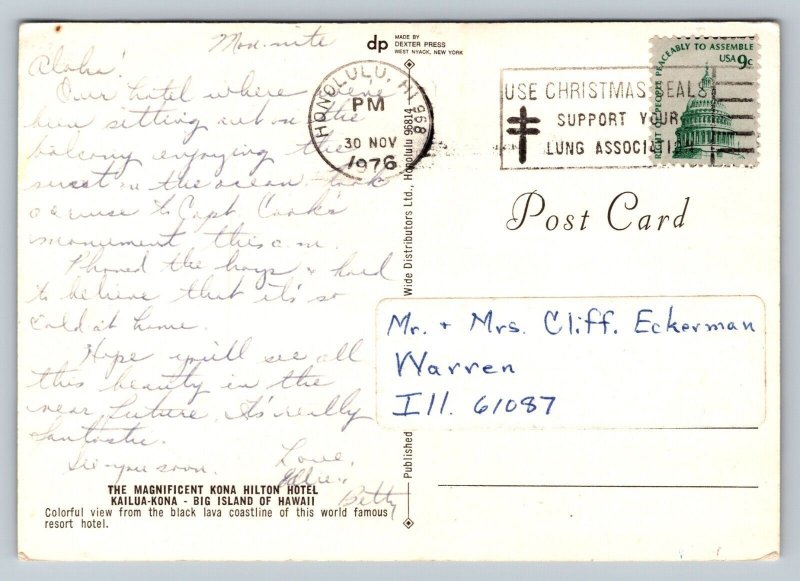 Mon. nite
Aloha!
Our hotel where we've
been sitting out on the
balcony enjoying the
sunset on the ocean. Took
a cruise to Capt. Cook's
monument this a.m.
Phoned the boys & hard
to believe that it's so
cold at home.
Hope you'll see all
this beauty in the
near future. It's really
fantastic.
See you soon.
Love,
Betty
THE MAGNIFICENT KONA HILTON HOTEL
KAILUA-KONA - BIG ISLAND OF HAWAII
Colorful view from the black lava coastline of this world famous
resort hotel.
dp
MADE BY
DEXTER PRESS
WEST NYACK, NEW YORK
Published
Wide Distributors Ltd., Honolulu 96814
HONOLULU, HI 968
PM
30 NOV
1976
USE CHRISTMAS SEALS
SUPPORT YOUR
LUNG ASSOCIATION
PEOPLE PEACEABLY TO ASSEMBLE
USA 9c
Post Card
Mr. + Mrs. Cliff. Eckerman
Warren
Ill. 61087